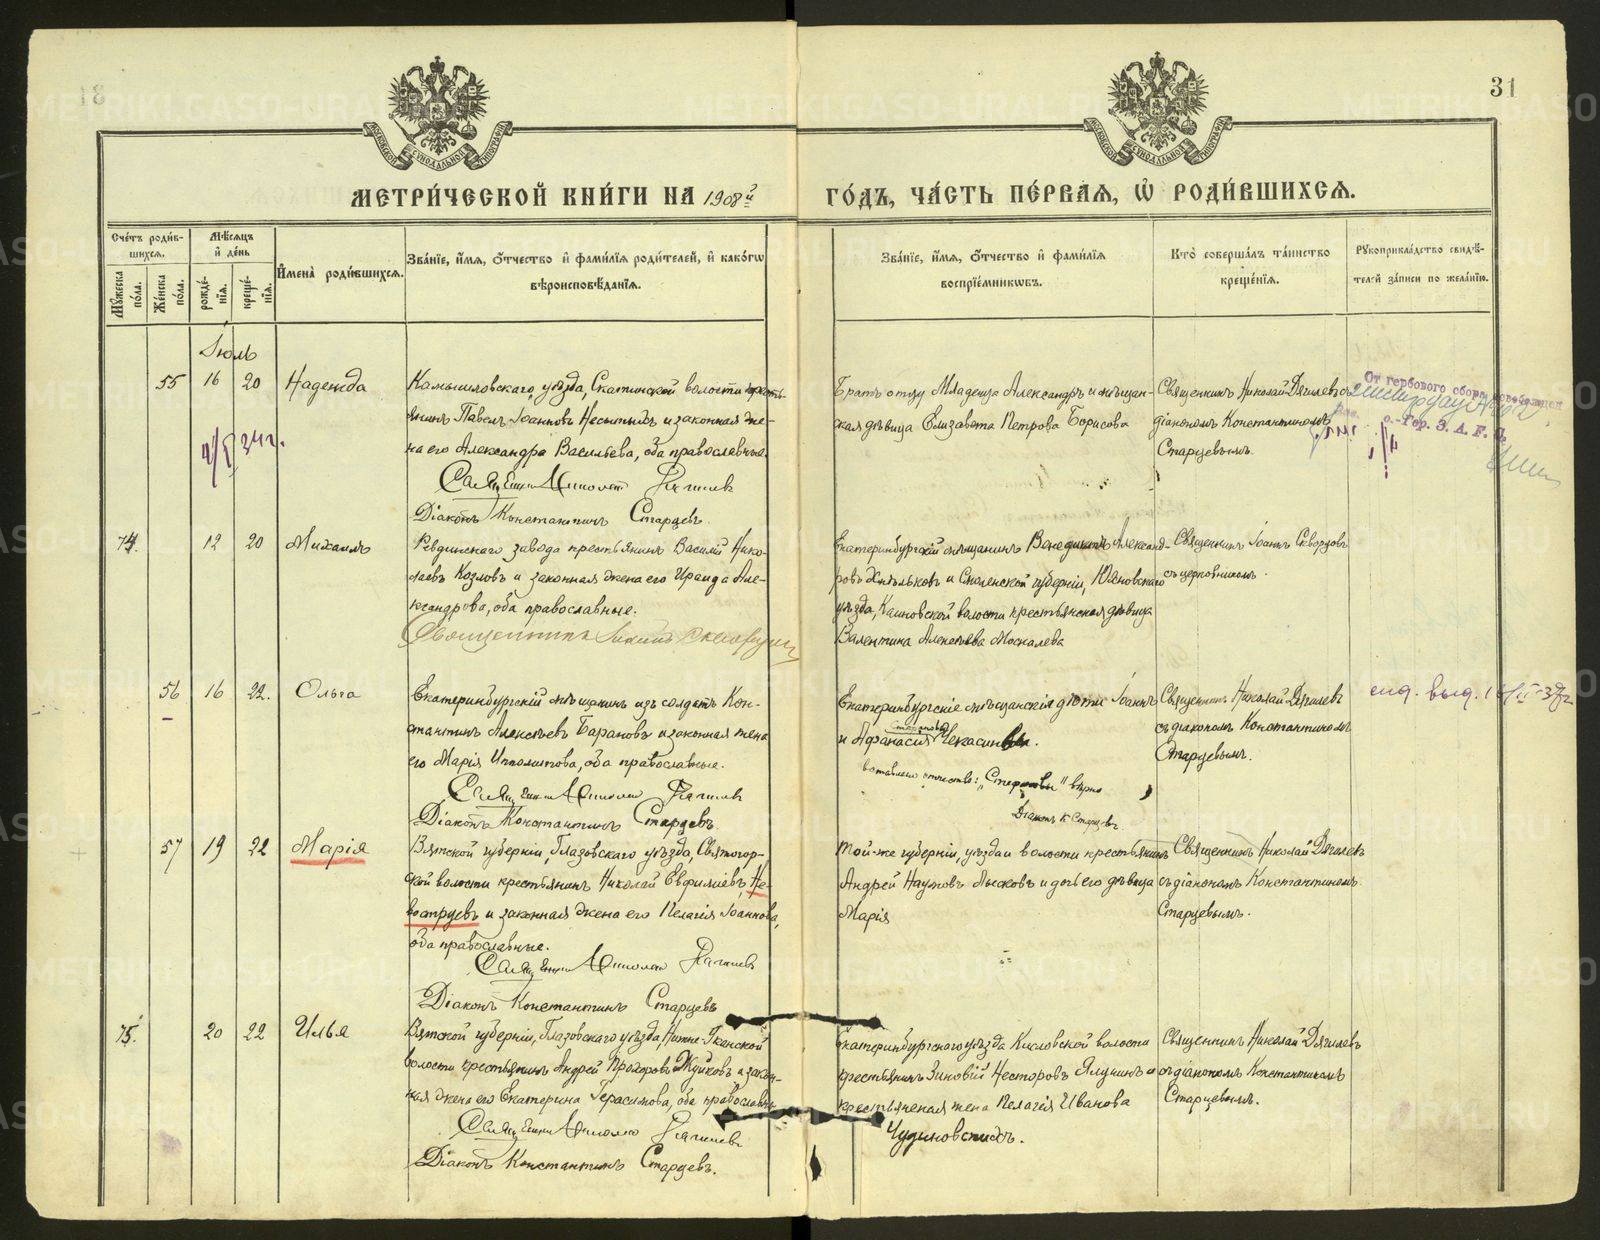 31
МЕТРИ́ЧЕСКОЙ КНИ́ГИ НА 1908й ГО́ДЪ, ЧА́СТЬ ПЕ́РВАЯ, Ѡ РОДИ́ВШИХСЯ.
Сче́тъ роди́вшихся.
Мѣ́сяцъ и де́нь
Имена̀ роди́вшихся.
Зва́нїе, и́мя, о́тчество и фами́лїя роди́телей, и како́гѡ
вѣроисповѣ́данїя.
Зва́нїе, и́мя, о́тчество и фами́лїя
воспрїе́мникѡвъ.
Кто̀ соверша́лъ та́инство
креще́нїя.
Рукоприкла́дство свидѣ́-
телей за́писи по жела́нїю.
Му́жеска по́ла.
Же́нска по́ла.
рожде́нїя.
креще́нїя.
Іюль
55 16 20 Надежда
Камышловскаго уѣзда, Скатинской волости кресть-
янинъ Павелъ Іоанновъ Несытыхъ и законная же-
на его Александра Васильева, оба православные.
Священникъ Николай Дягилевъ
Діаконъ Константинъ Старцевъ.
Братъ отцу младенца Александръ и мѣщан-
ская дѣвица Елизавета Петрова Борисова
Священникъ Николай Дягилевъ съ
діакономъ Константиномъ
Старцевымъ.
От гербового сбора освобожден
74. 12 20 Михаилъ
Ревдинскаго завода крестьянинъ Василій Нико-
лаевъ Козловъ и законная жена его Ираида Але-
ксандрова, оба православные.
Священникъ Іоаннъ Скворцовъ
Екатеринбургскій мѣщанинъ Венедиктъ Александ-
ровъ Хмѣльковъ и Смоленской губерніи, Юхновскаго
уѣзда, волости крестьянская дѣвица
Валентина Алексѣева Москалева
Священникъ Іоаннъ Скворцовъ
съ церковникомъ.
56 16 22. Ольга
Екатеринбургскій мѣщанинъ изъ солдатъ Кон-
стантинъ Алексѣевъ Барановъ и законная жена
его Марія Ипполитова, оба православные.
Священникъ Николай Дягилевъ
Діаконъ Константинъ Старцевъ.
Екатеринбургскіе мѣщанскія дѣти Іоаннъ
и Афанасія Чекасины.
вставлено отчество: „Стефановы" вѣрно
Діаконъ К Старцевъ.
Священникъ Николай Дягилевъ
съ діакономъ Константиномъ
Старцевымъ.
57 19 22 Марія
Вятской губерніи, Глазовскаго уѣзда, Святогор-
ской волости крестьянинъ Николай Евфиміевъ Не-
воструевъ и законная жена его Пелагія Іоаннова,
оба православные.
Священникъ Николай Дягилевъ
Діаконъ Константинъ Старцевъ
Той-же губерніи, уѣзда и волости крестьянинъ
Андрей Наумовъ Лысковъ и дочь его дѣвица
Марія
Священникъ Николай Дягилевъ
съ діакономъ Константиномъ
Старцевымъ.
75. 20 22 Илья
Вятской губерніи, Глазовскаго уѣзда, Нижне-Уканской
волости крестьянинъ Андрей Прохоровъ Жуйковъ и закон-
ная жена его Екатерина Герасимова, оба православные
Священникъ Николай Дягилевъ
Діаконъ Константинъ Старцевъ.
Екатеринбургскаго уѣзда Кисловской волости
крестьянинъ Зиновій Несторовъ Ялунинъ и
крестьянская жена Пелагія Иванова
Чудиновскихъ.
Священникъ Николай Дягилевъ
съ діакономъ Константиномъ
Старцевымъ.
METRIKI.GASO-URAL.RU